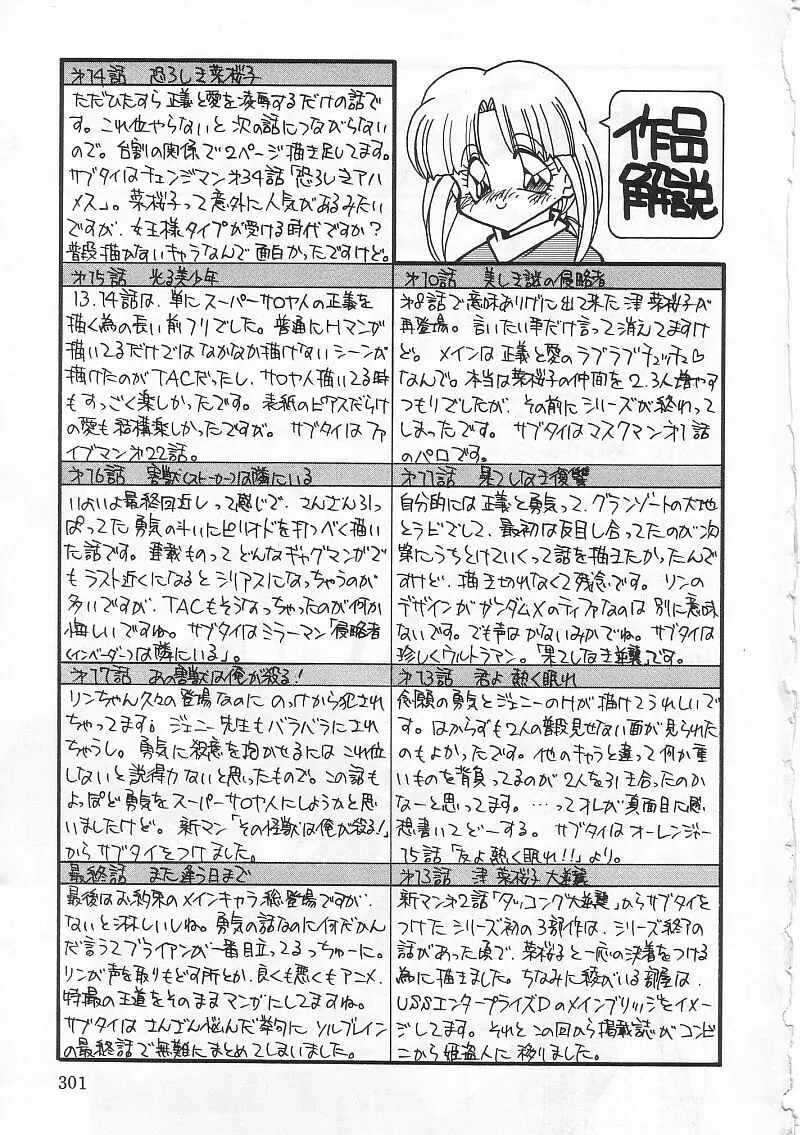 作品
解説
第10話 美しき謎の侵略者
第8話で意味ありげに出て来た津 菜桜子が
再登場。言いたい事だけ言って消えてますけ
ど。メインは正義と愛のラブラブチュッチュ♡
なんで。本当は菜桜子の仲間を2.3人増やす
つもりでしたが、その前にシリーズが終わって
しまったです。サブタイはマスクマン第1話
のパロです。
第11話 果てしなき復讐
自分的には正義と勇気って、グランゾートの大地
とラビでして、最初は反目し合ってたのが次
第にうちとけていくって話を描きたかったんで
すけど、描き切れなくて残念です。リンの
デザインがガンダムXのティファなのは別に意味
ないです。でも声はかないみかでね。サブタイは
珍しくウルトラマン。「果てしなき逆襲」です。
第13話 君よ熱く眠れ
念願の勇気とジェニーのHが描けてうれしいで
す。はからずも2人の普段見せない面が見られた
のもよかったです。他のキャラと違って何か重
いものを背負ってるのが2人を引き合ったのか
なーと思ってます。…ってオレが真面目に感
想書いてどーする。サブタイはオーレンジャー
15話「友よ熱く眠れ!!」より。
第13話 津 菜桜子 大逆襲
新マン第2話「タッコング大逆襲」からサブタイを
つけたシリーズ初の3部作は、シリーズ終了の
話があった頃で、菜桜子と一応の決着をつける
為に描きました。ちなみに彼がいる部屋は、
USSエンタープライズDのメインブリッジをイメー
ジしてます。それとこの回から掲載誌がコンビ
ニから姫盗人に移りました。
第14話 恐ろしき菜桜子
ただひたすら正義と愛を凌辱するだけの話で
す。これ位やらないと次の話につながらない
ので。台割の関係で2ページ描き足してます。
サブタイはチェンジマン第34話「恐ろしきアハ
メス」。菜桜子って意外に人気があるみたい
ですが、女王様タイプが受ける時代ですか?
普段描かないキャラなんで面白かったですけど。
第15話 光る美少年
13.14話は、単にスーパーサロヤ人の正義を
描く為の長い前フリでした。普通にHマンが
描いてるだけではなかなか描けないシーンが
描けたのがTACだったし、サロヤ人描いてる時
もすっごく楽しかったです。表紙のピアスだらけ
の愛も結構楽しかったですが。サブタイはファ
イブマン第22話。
第16話 害獣(ストーカー)は隣にいる
いよいよ最終回近しって感じで、さんざん引っ
ぱってた勇気の斗いにピリオドを打つべく描い
た話です。連載ものってどんなギャグマンガで
もラスト近くになるとシリアスになっちゃうのが
多いですが、TACもそうなっちゃったのが何か
悔しいですね。サブタイはミラーマン「侵略者
(インベーダー)は隣にいる」。
第17話 あの害獣は俺が殺る!
リンちゃん久々の登場なのにのっけから犯され
ちゃってます。ジェニー先生もバラバラにされ
ちゃうし。勇気に殺意を抱かせるにはこれ位
しないと説得力ないと思ったもので。この話も
よっぽど勇気をスーパーサロヤ人にしようかと思
いましたけど。新マン「その怪獣は俺が殺る!」
からサブタイをつけました。
最終話 また逢う日まで
最後はお約束のメインキャラ総登場ですが、
ないと淋しいしね。勇気の話なのに何だかん
だ言うてブライアンが一番目立ってるっちゅーに。
リンが声を取りもどす所とか、良くも悪くもアニメ、
特撮の王道をそのままマンガにしてますね。
サブタイはさんざん悩んだ挙句にソルブレイン
の最終話で無難にまとめてしまいました。
301